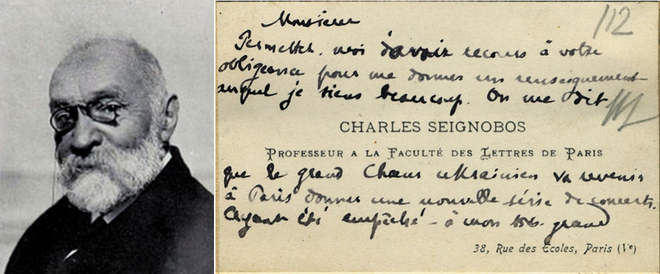 112
Monsieur
Permettez-moi d'avoir recours à votre
obligeance pour me donner un renseignement
auquel je tiens beaucoup. On me dit
CHARLES SEIGNOBOS
PROFESSEUR A LA FACULTÉ DES LETTRES DE PARIS
que le grand Chœur ukrainien va revenir
à Paris donner une nouvelle série de concerts.
Ayant été empêché - à mon très grand
38, Rue des Écoles, Paris (Ve)